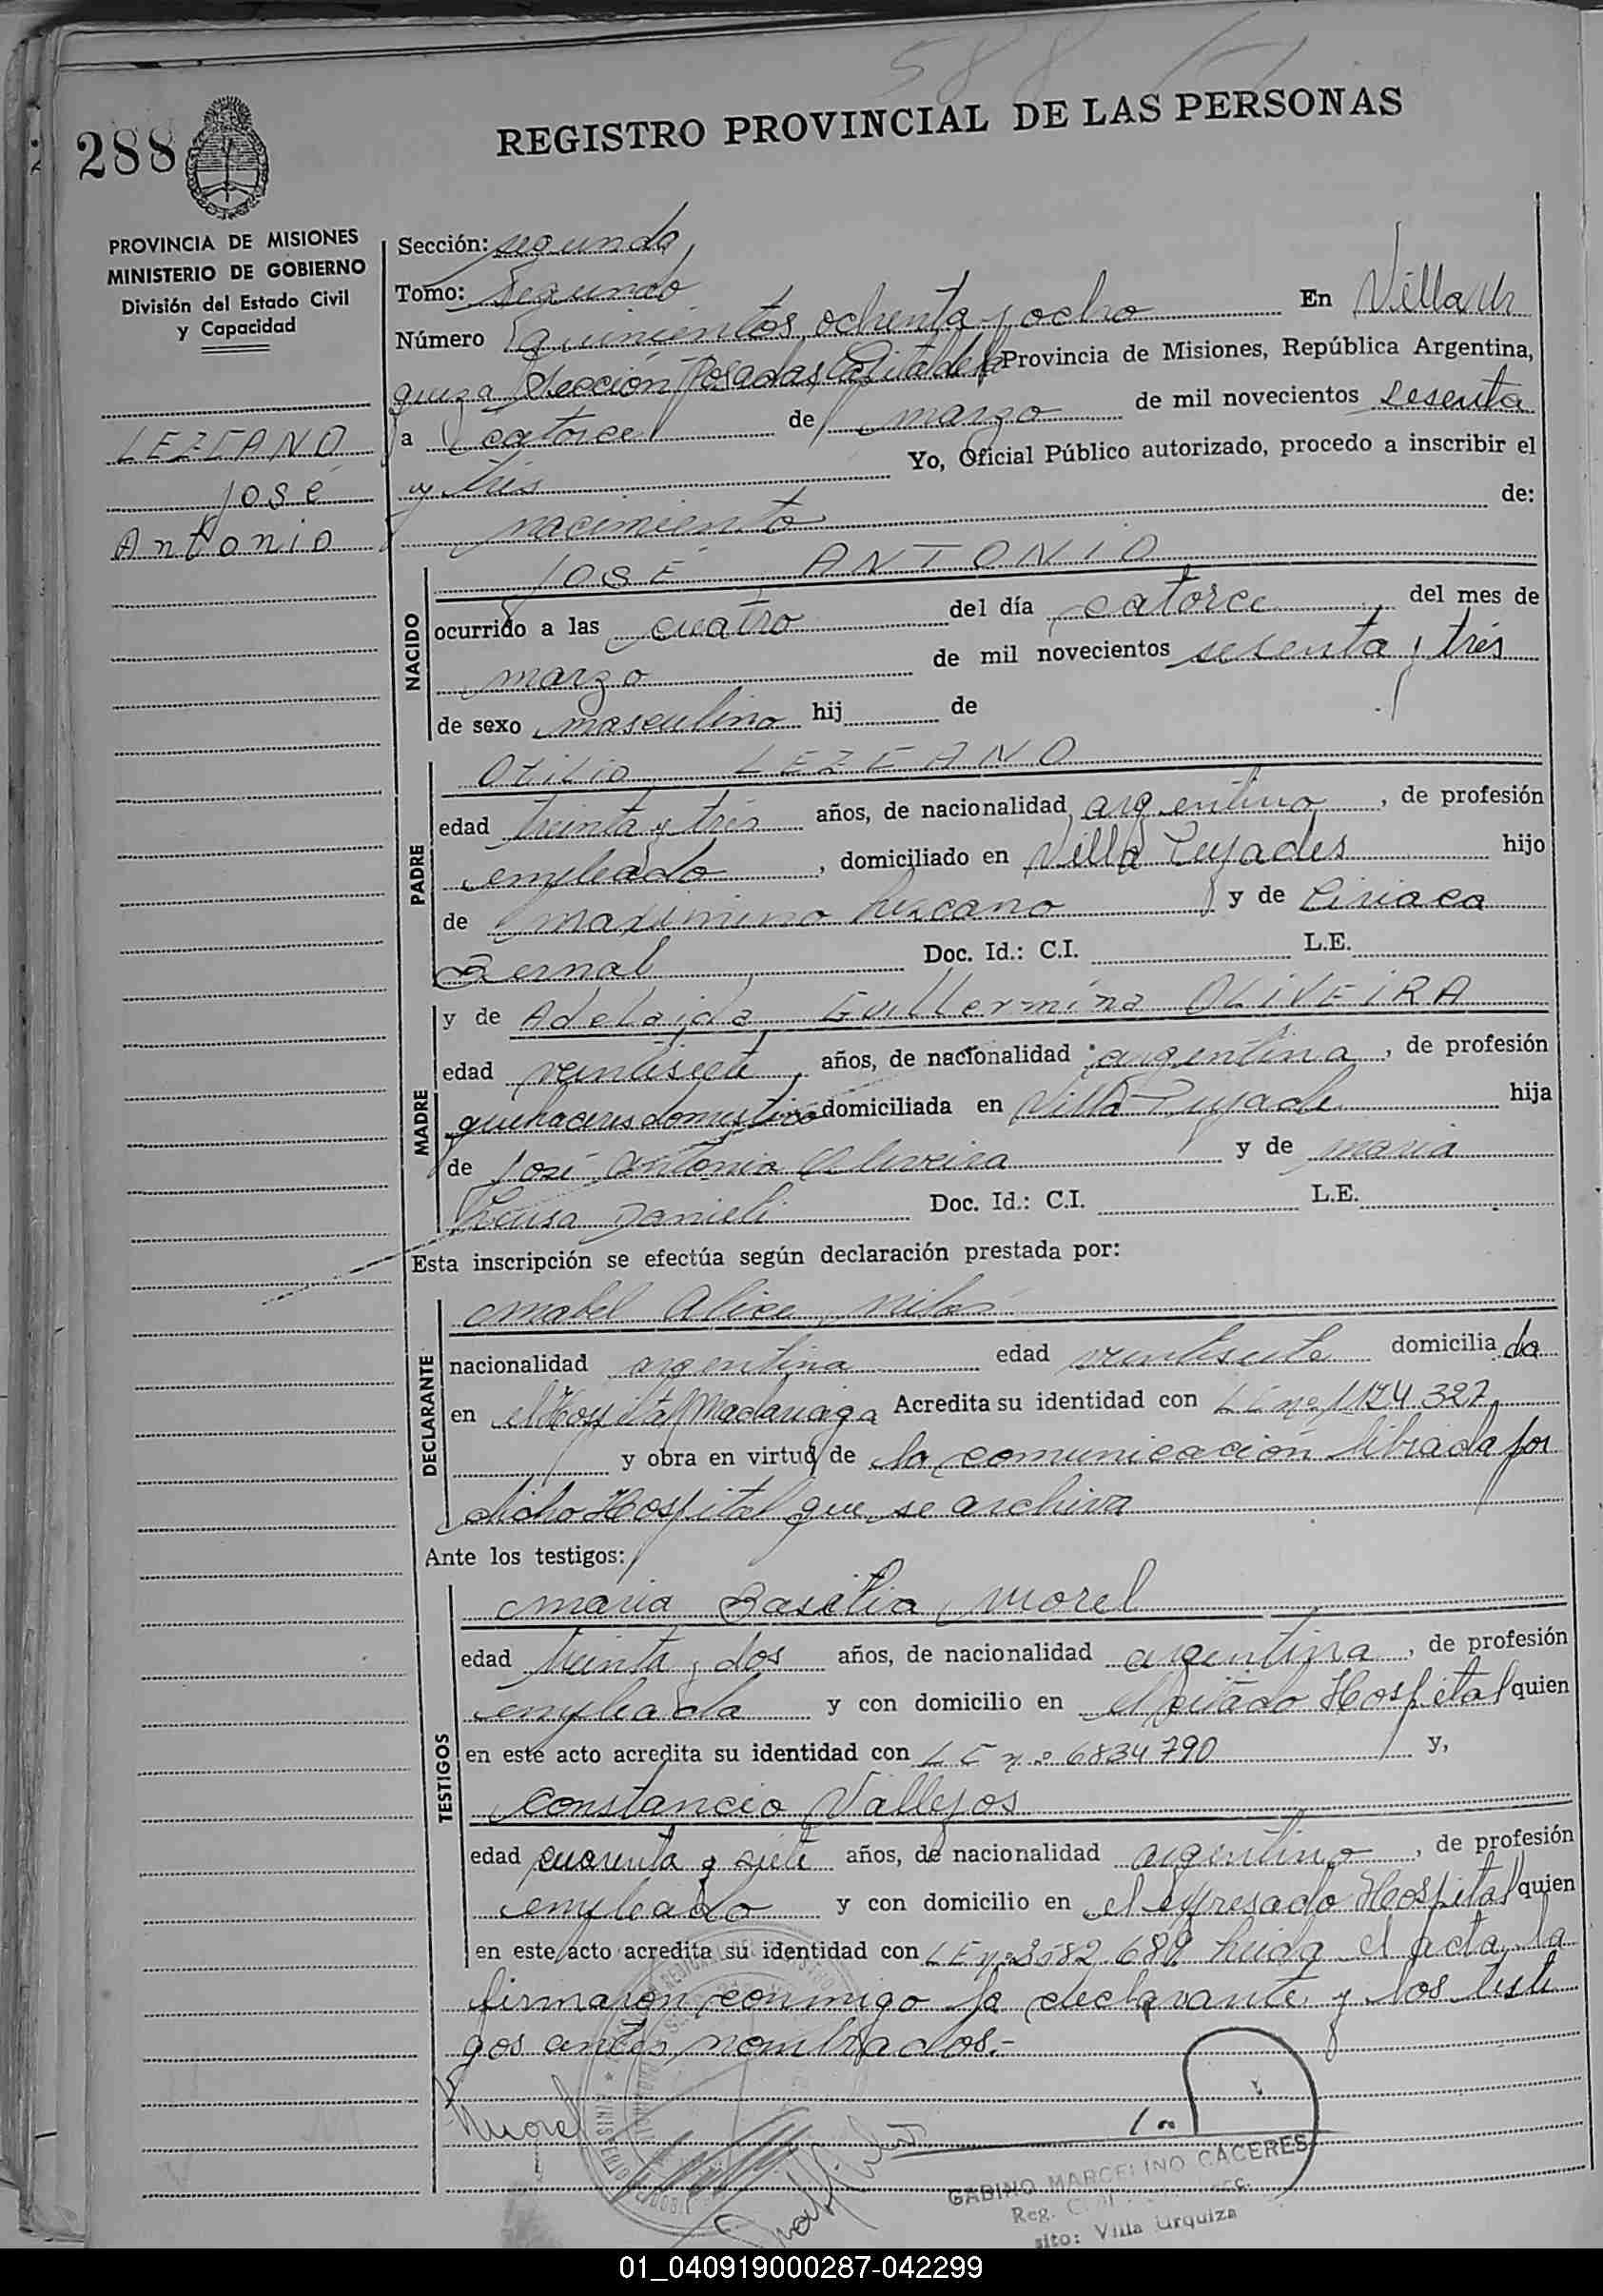 588
288
REGISTRO PROVINCIAL DE LAS PERSONAS
PROVINCIA DE MISIONES
MINISTERIO DE GOBIERNO
División del Estado Civil
y Capacidad
LEZCANO
José
Antonio
Sección: segunda
Tomo: Segundo
Número Quinientos ochenta y ocho En Villa Ur
quiza Sección Posadas Capital de la Provincia de Misiones, República Argentina,
a catorce de marzo de mil novecientos sesenta
y tres Yo, Oficial Público autorizado, procedo a inscribir el
nacimiento de:
NACIDO
JOSÉ ANTONIO
ocurrido a las cuatro del día catorce del mes de
marzo de mil novecientos sesenta y tres
de sexo masculino hij de
PADRE
Otilio LEZCANO
edad treinta y tres años, de nacionalidad argentino, de profesión
empleado, domiciliado en Villa Pujades hijo
de Maximino Lezcano y de Ciriaca
Bernal Doc. Id.: C.I. L.E.
MADRE
y de Adelaida Guillermina OLIVEIRA
edad veintisiete, años, de nacionalidad argentina, de profesión
quehaceres domesticos domiciliada en Villa Pujade hija
de José Antonio Oliveira y de maria
Luisa Danieli Doc. Id.: C.I. L.E.
Esta inscripción se efectúa según declaración prestada por:
DECLARANTE
Amabel Alice
nacionalidad argentina edad veintisiete domiciliada
en el Hospital Madariaga Acredita su identidad con LC nº 1174.327
y obra en virtud de la comunicación librada por
dicho Hospital que se archiva
Ante los testigos:
TESTIGOS
Maria Basilia Morel
edad treinta y dos años, de nacionalidad argentina, de profesión
empleada y con domicilio en el citado Hospital quien
en este acto acredita su identidad con LC nº 6834790 y,
Constancio Vallejos
edad cuarenta y siete años, de nacionalidad argentino, de profesión
empleado y con domicilio en el expresado Hospital quien
en este acto acredita su identidad con LE nº 3582.689 Leida el acta, la
firmaron conmigo la declarante y los testi
gos antes nombrados.-
Morel
GABINO MARCELINO CACERES
Reg.
sito: Villa Urquiza
01_040919000287-042299